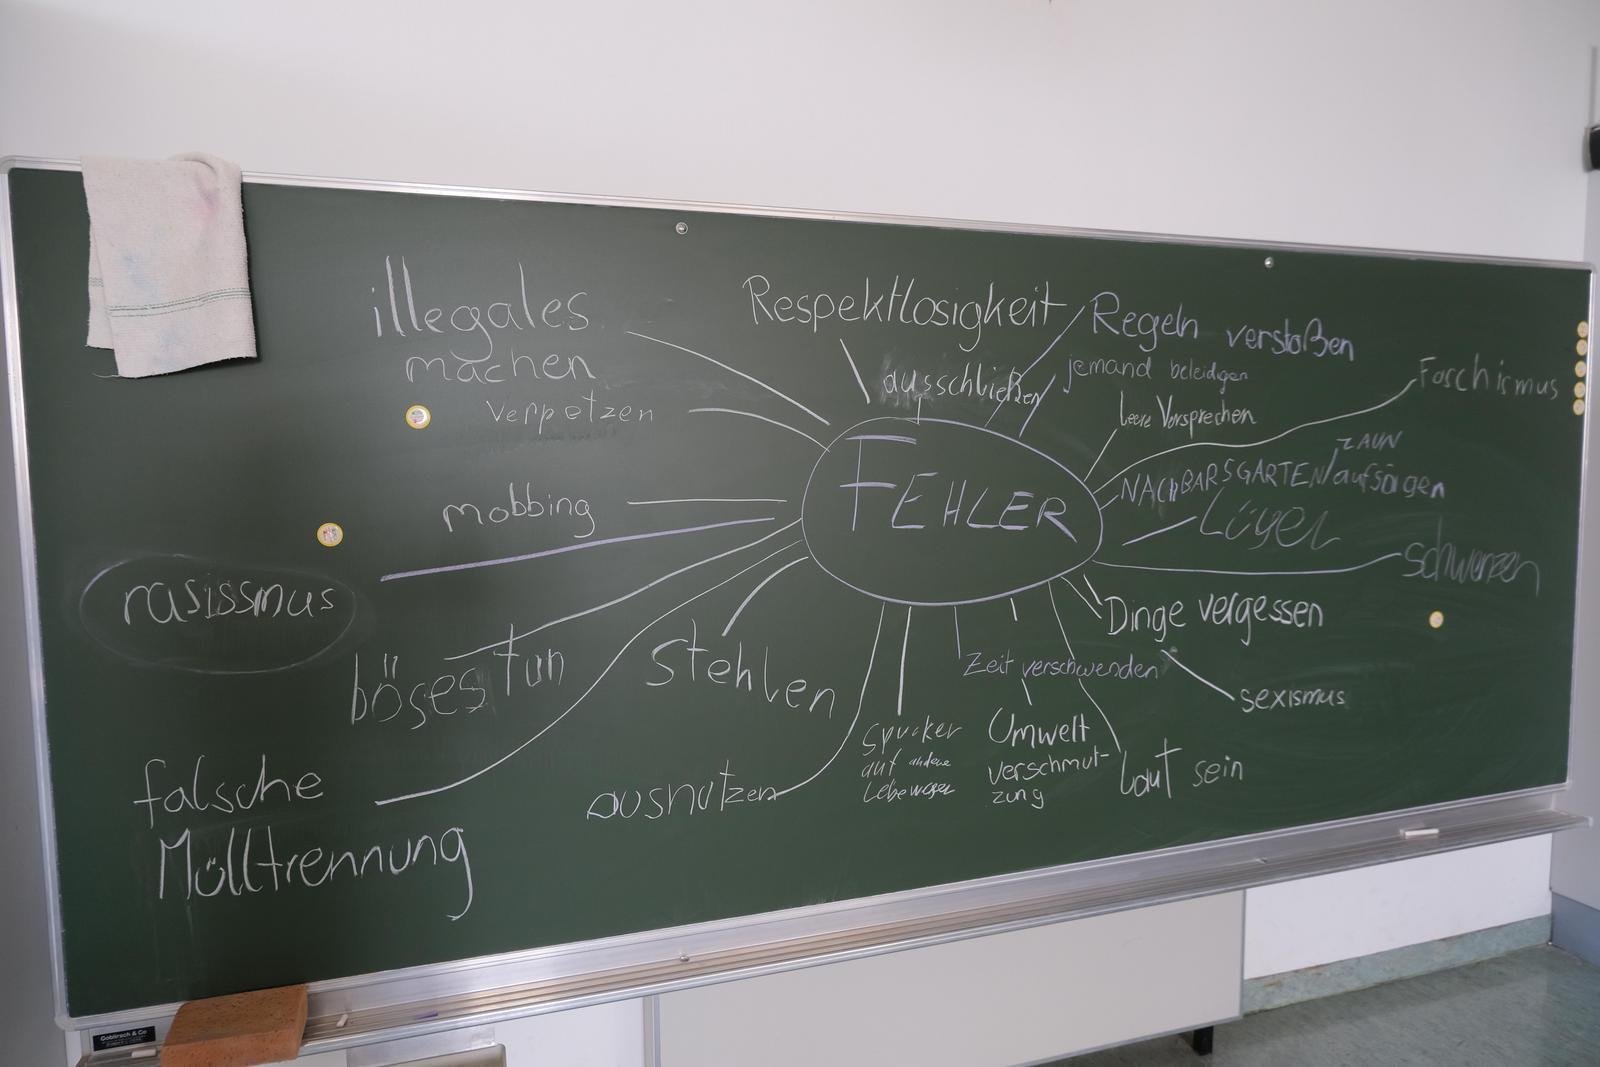 illegales
machen
verpetzen
mobbing
rasissmus
böses tun
falsche
Mülltrennung
Stehlen
ausnutzen
Respektlosigkeit
ausschließen
Regeln verstoßen
jemand beleidigen
leere Versprechen
Faschismus
ZAUN
NACHBARSGARTEN/aufsägen
Lügen
schwenzen
FEHLER
Dinge vergessen
sexismus
Zeit verschwenden
Spucken
auf andere
Lebewesen
Umwelt
verschmut-
zung
Laut sein